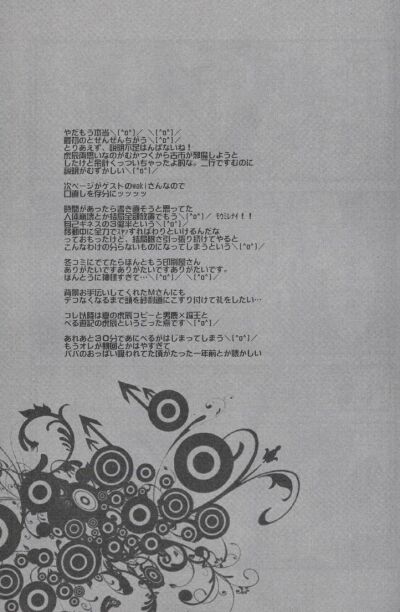 やだもう本当＼(^o^)／ ＼(^o^)／
最初のとぜんぜんちがう＼(^o^)／
とりあえず、説明不足はんぱないね！
虎辰両思いなのがむかつくから古市が邪魔しようと
したけど余計くっついちゃったよ的な。二行ですむのに
説明がむずかしい＼(^o^)／
次ページがゲストのwakiさんなので
口直しを存分にッッッッ
時間があったら書き直そうと思ってた
人体崩壊とか結局全編放置でもう＼(^o^)／
自己ギネスの3
移動中に全力ですればわりといけるんだな
っておもったけど、結局眠さ引っ張り続けてやると
こんなわけの分らないものになってしまうという＼(^o^)／
冬コミにでてたらほんともう印刷屋さん
ありがたいですありがたいですありがたいです。
ほんとうに薄謝ですて…＼(^o^)／ ＼(^o^)／
背景お手伝いしてくれたMさんにも
デコなくなるまで頭を砂利道にこすり付けて礼をしたい…
コレ以降は夏の虎辰コピーと男鹿×
べる遊記の虎辰というごった煮です＼(^o^)／
あれあと30分であにべるがはじまってしまう＼(^o^)／
もうオレが類回とかはやすぎて
パパのおっぱい吸われてた頃がたった一年前とか懐かしい